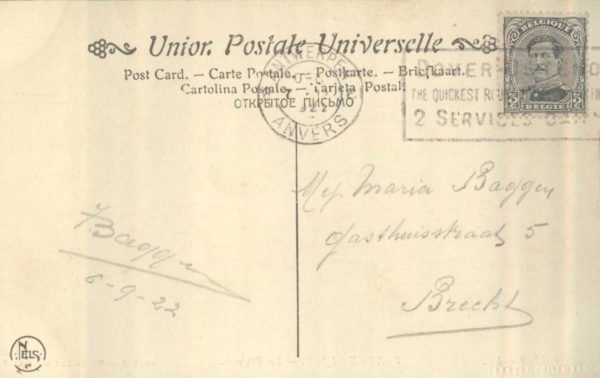 Union Postale Universelle
Post Card. – Carte Postale. – Postkarte. – Briefkaart.
Cartolina Postale. – Tarjeta Postal.
ОТКРЫТОЕ ПИСЬМО
ANTWERPEN
ANVERS
BELGIQUE
BELGIE
DOVER-OSTEND
THE QUICKEST
2 SERVICES DAILY
Mej. Maria Baggen
Gasthuisstraat 5
Brecht
Baggen
6-9-22